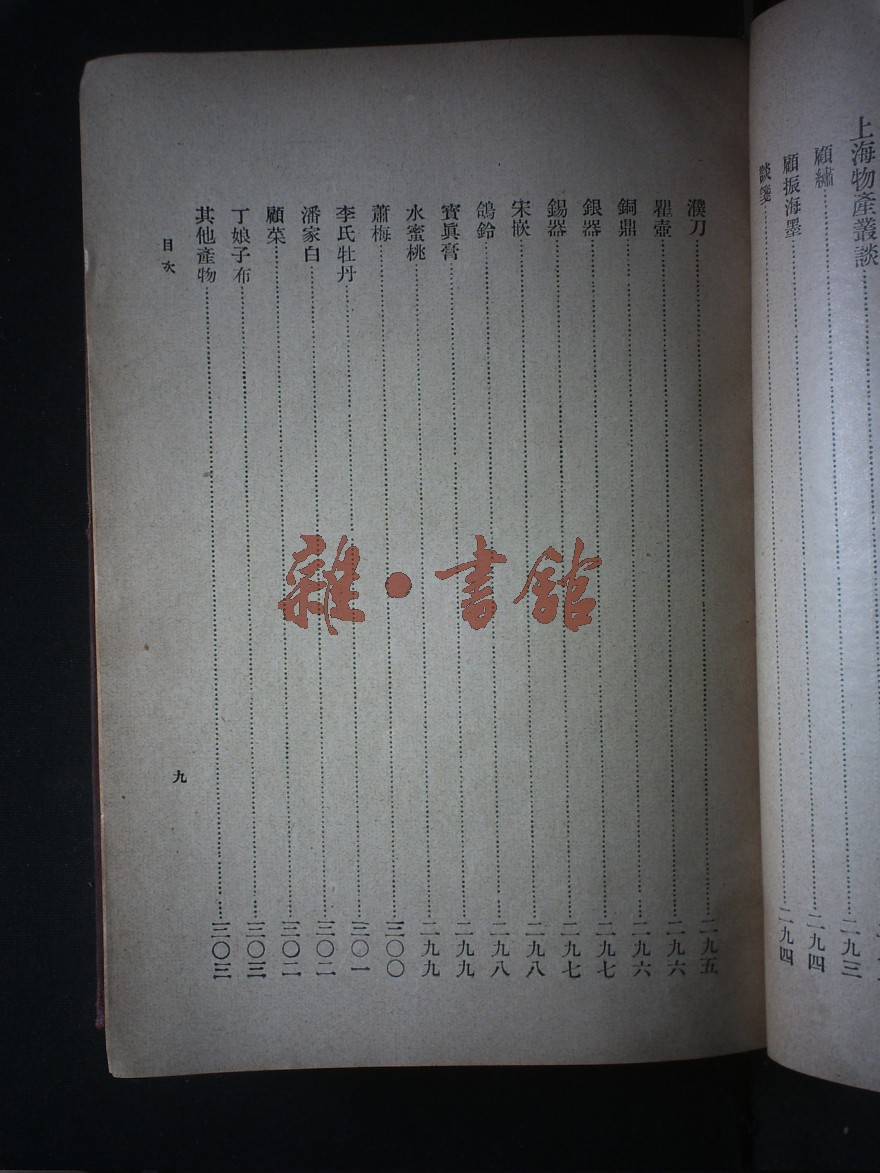 上海物產叢談……二九三
顧繡……二九四
顧振海墨……二九四
談箋
濮刀……二九五
瞿壺……二九六
銅鼎……二九六
銀器……二九七
錫器……二九七
宋嵌……二九八
鴿鈴……二九八
寶眞膏……二九九
水蜜桃……二九九
蕭梅……三〇〇
李氏牡丹……三〇一
潘家白……三〇二
顧菜……三〇二
丁娘子布……三〇三
其他產物……三〇三
目次
九
雜·書館